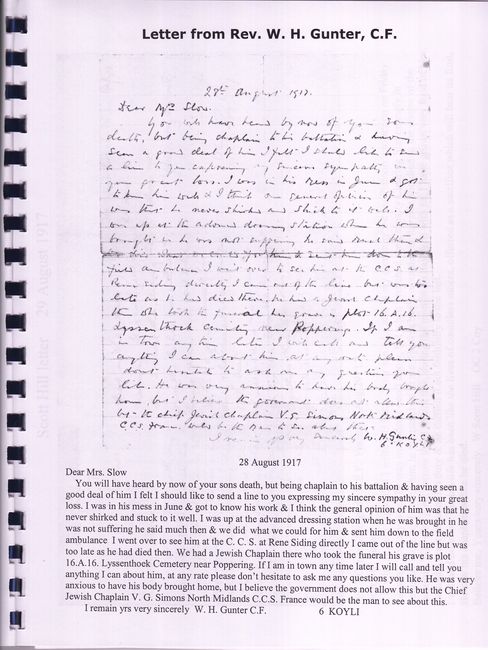 Letter from Rev. W. H. Gunter, C.F.
28th August 1917.
Dear Mrs. Slow.
You will have heard by now of your sons
death, but being chaplain to his battalion & having
seen a good deal of him I felt I should like to send
a line to you expressing my sincere sympathy in
your great loss. I was in his mess in June & got
to know his work & I think the general opinion of him
was that he never shirked and stuck to it well. I
was up at the advanced dressing station when he was
brought in he was not suffering he said much then &
we did what we could for him & sent him down to the
field ambulance I went over to see him at the C.C.S. at
Rene Siding directly I came out of the line but was too
late as he had died there. We had a Jewish Chaplain
there who took the funeral his grave is plot 16.A.16.
Lyssenthock Cemetery near Poppering. If I am
in town any time later I will call and tell you
anything I can about him, at any rate please
dont hesitate to ask me any questions you
like. He was very anxious to have his body brought
home, but I believe the government does not allow this
but the chief Jewish chaplain V.G. Simons North Midlands
C.C.S. France would be the man to see about this.
I remain yrs very sincerely W. H. Gunter C.F.
6 KOYLI
28 August 1917
Dear Mrs. Slow
You will have heard by now of your sons death, but being chaplain to his battalion & having seen a
good deal of him I felt I should like to send a line to you expressing my sincere sympathy in your great
loss. I was in his mess in June & got to know his work & I think the general opinion of him was that he
never shirked and stuck to it well. I was up at the advanced dressing station when he was brought in he
was not suffering he said much then & we did what we could for him & sent him down to the field
ambulance I went over to see him at the C. C. S. at Rene Siding directly I came out of the line but was
too late as he had died then. We had a Jewish Chaplain there who took the funeral his grave is plot
16.A.16. Lyssenthock Cemetery near Poppering. If I am in town any time later I will call and tell you
anything I can about him, at any rate please don't hesitate to ask me any questions you like. He was very
anxious to have his body brought home, but I believe the government does not allow this but the Chief
Jewish Chaplain V. G. Simons North Midlands C.C.S. France would be the man to see about this.
I remain yrs very sincerely W. H. Gunter C.F. 6 KOYLI